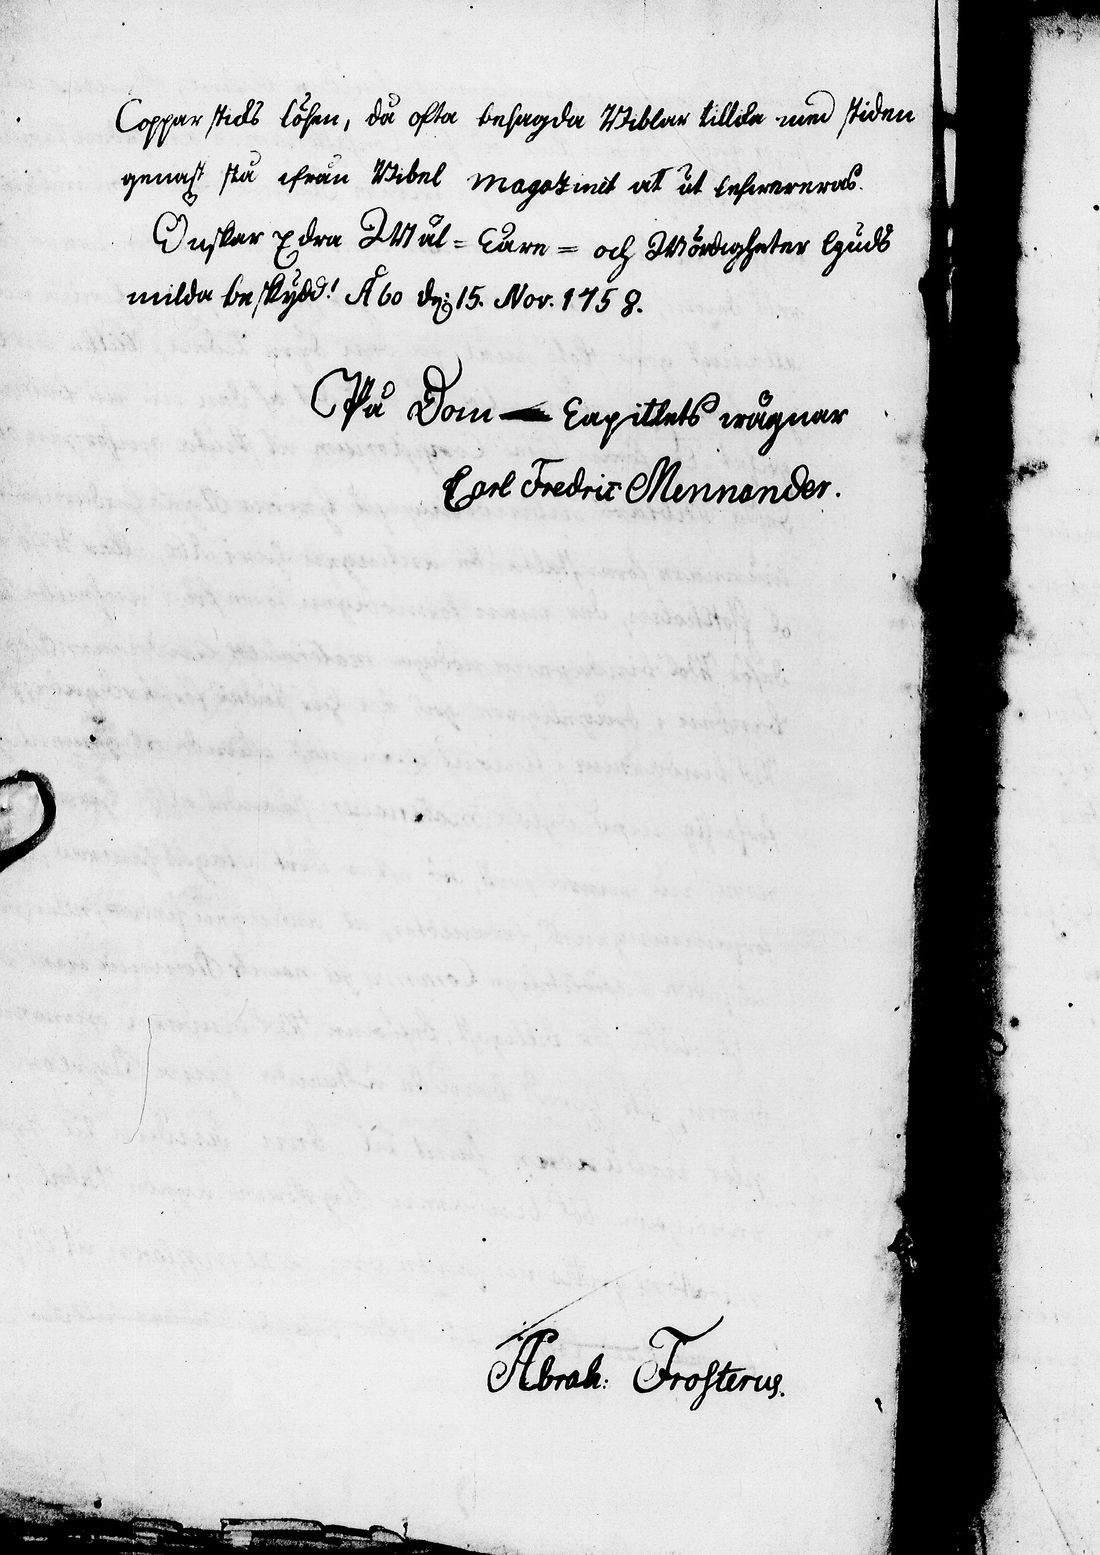 Copparsticks lösen, då ofta besagda Biblar tillika med stiden
genast stå ifrån Bibel magazinet at ut lefvereras.
Önskar Edra Wäl=Ehre= och Wördigheter Guds
milda beskydd! Åbo d. 15. Nov. 1758.
På Dom-Capitlets wägnar
Carl Fredric Mennander.
Abrah: Frosterus.